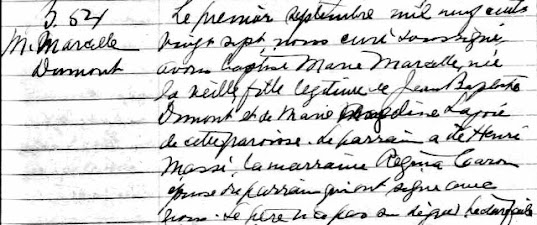 B. 64
M. Marcelle
Dumont
Le premier septembre mil neuf cent
vingt sept, nous curé soussigné
avons baptisé Marie Marcelle, née
la veille, fille légitime de Jean Baptiste
Dumont et de Marie Lajoie
de cette paroisse. Le parrain a été Henri
Massé, la marraine Régina Caron
épouse du parrain qui ont signé avec
nous. Le père n'a pas su signer